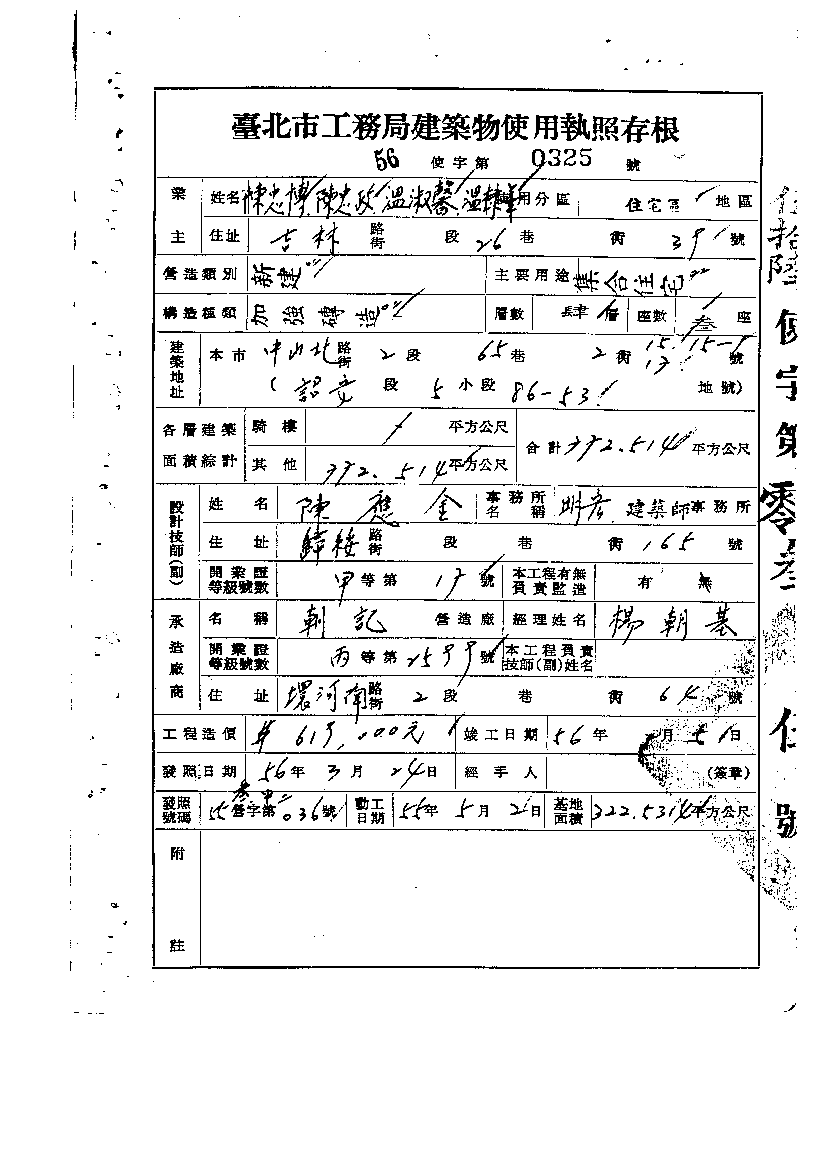 臺北市工務局建築物使用執照存根
56 使字第 0325 號
業主 姓名 陳忠博 陳忠政 溫淑馨 使用分區 住宅區 地區
住址 吉林 路街 段 26 巷 衖 39 號
營造類別 新建 主要用途 集合住宅
構造種類 加強磚造 層數 層 座數 叁 座
建築地址 本市 中山北 路街 2 段 65 巷 2 衖 15. 15-1 17 號
( 段 5 小段 86-53 地號)
各層建築面積綜計 騎樓 平方公尺 合計 392.514 平方公尺
其他 392.514 平方公尺
設計技師(副) 姓名 陳應金 事務所名稱 明彥 建築師事務所
住址 路街 段 巷 衖 165 號
開業證等級號數 甲等第 17 號 本工程有無負責監造 有 無
承造廠商 名稱 朝記 營造廠 經理姓名 楊朝基
開業證等級號數 丙等第 2599 號 本工程負責技師(副)姓名
住址 環河南 路街 2 段 巷 衖 64 號
工程造價 619,000元 竣工日期 56年 月 日
發照日期 56年 3月 24日 經手人 (簽章)
發照號碼 55 營字第 036 號 動工日期 55年 5月 2日 基地面積 322.5314 平方公尺
附註
拾陸使字第零叁
住
號